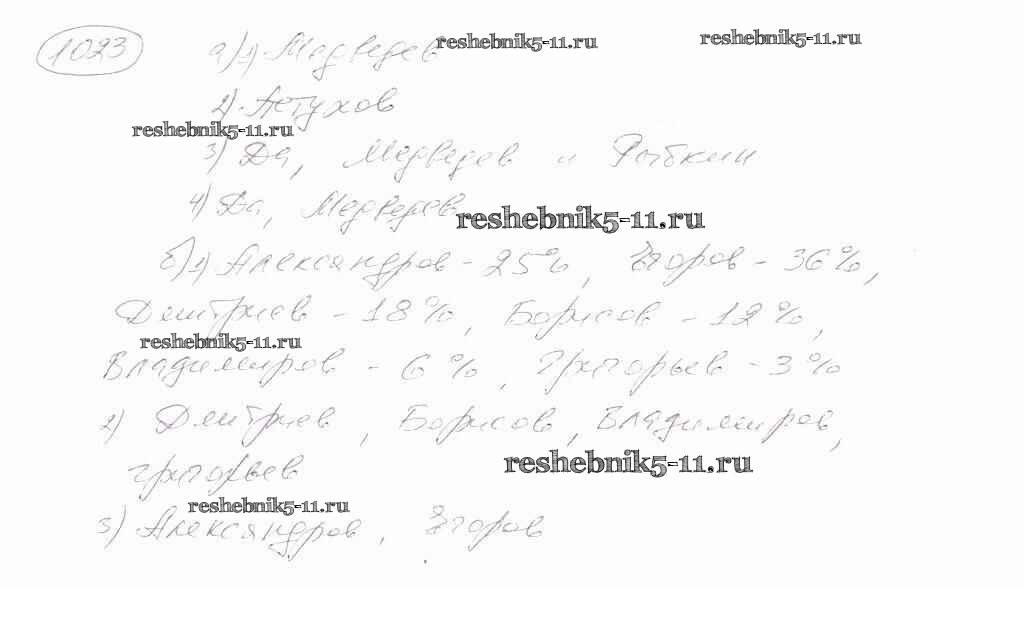 1023 а) 1) Медведев reshebnik5-11.ru reshebnik5-11.ru
2) Петухов
reshebnik5-11.ru
3) Да, Медведев и Рыбкин
4) Да, Медведев reshebnik5-11.ru
б) 1) Александров - 25%, Егоров - 36%,
Дмитриев - 18%, Борисов - 12%,
reshebnik5-11.ru
Владимиров - 6%, Григорьев - 3%
2) Дмитриев, Борисов, Владимиров,
Григорьев reshebnik5-11.ru
reshebnik5-11.ru
3) Александров, Егоров